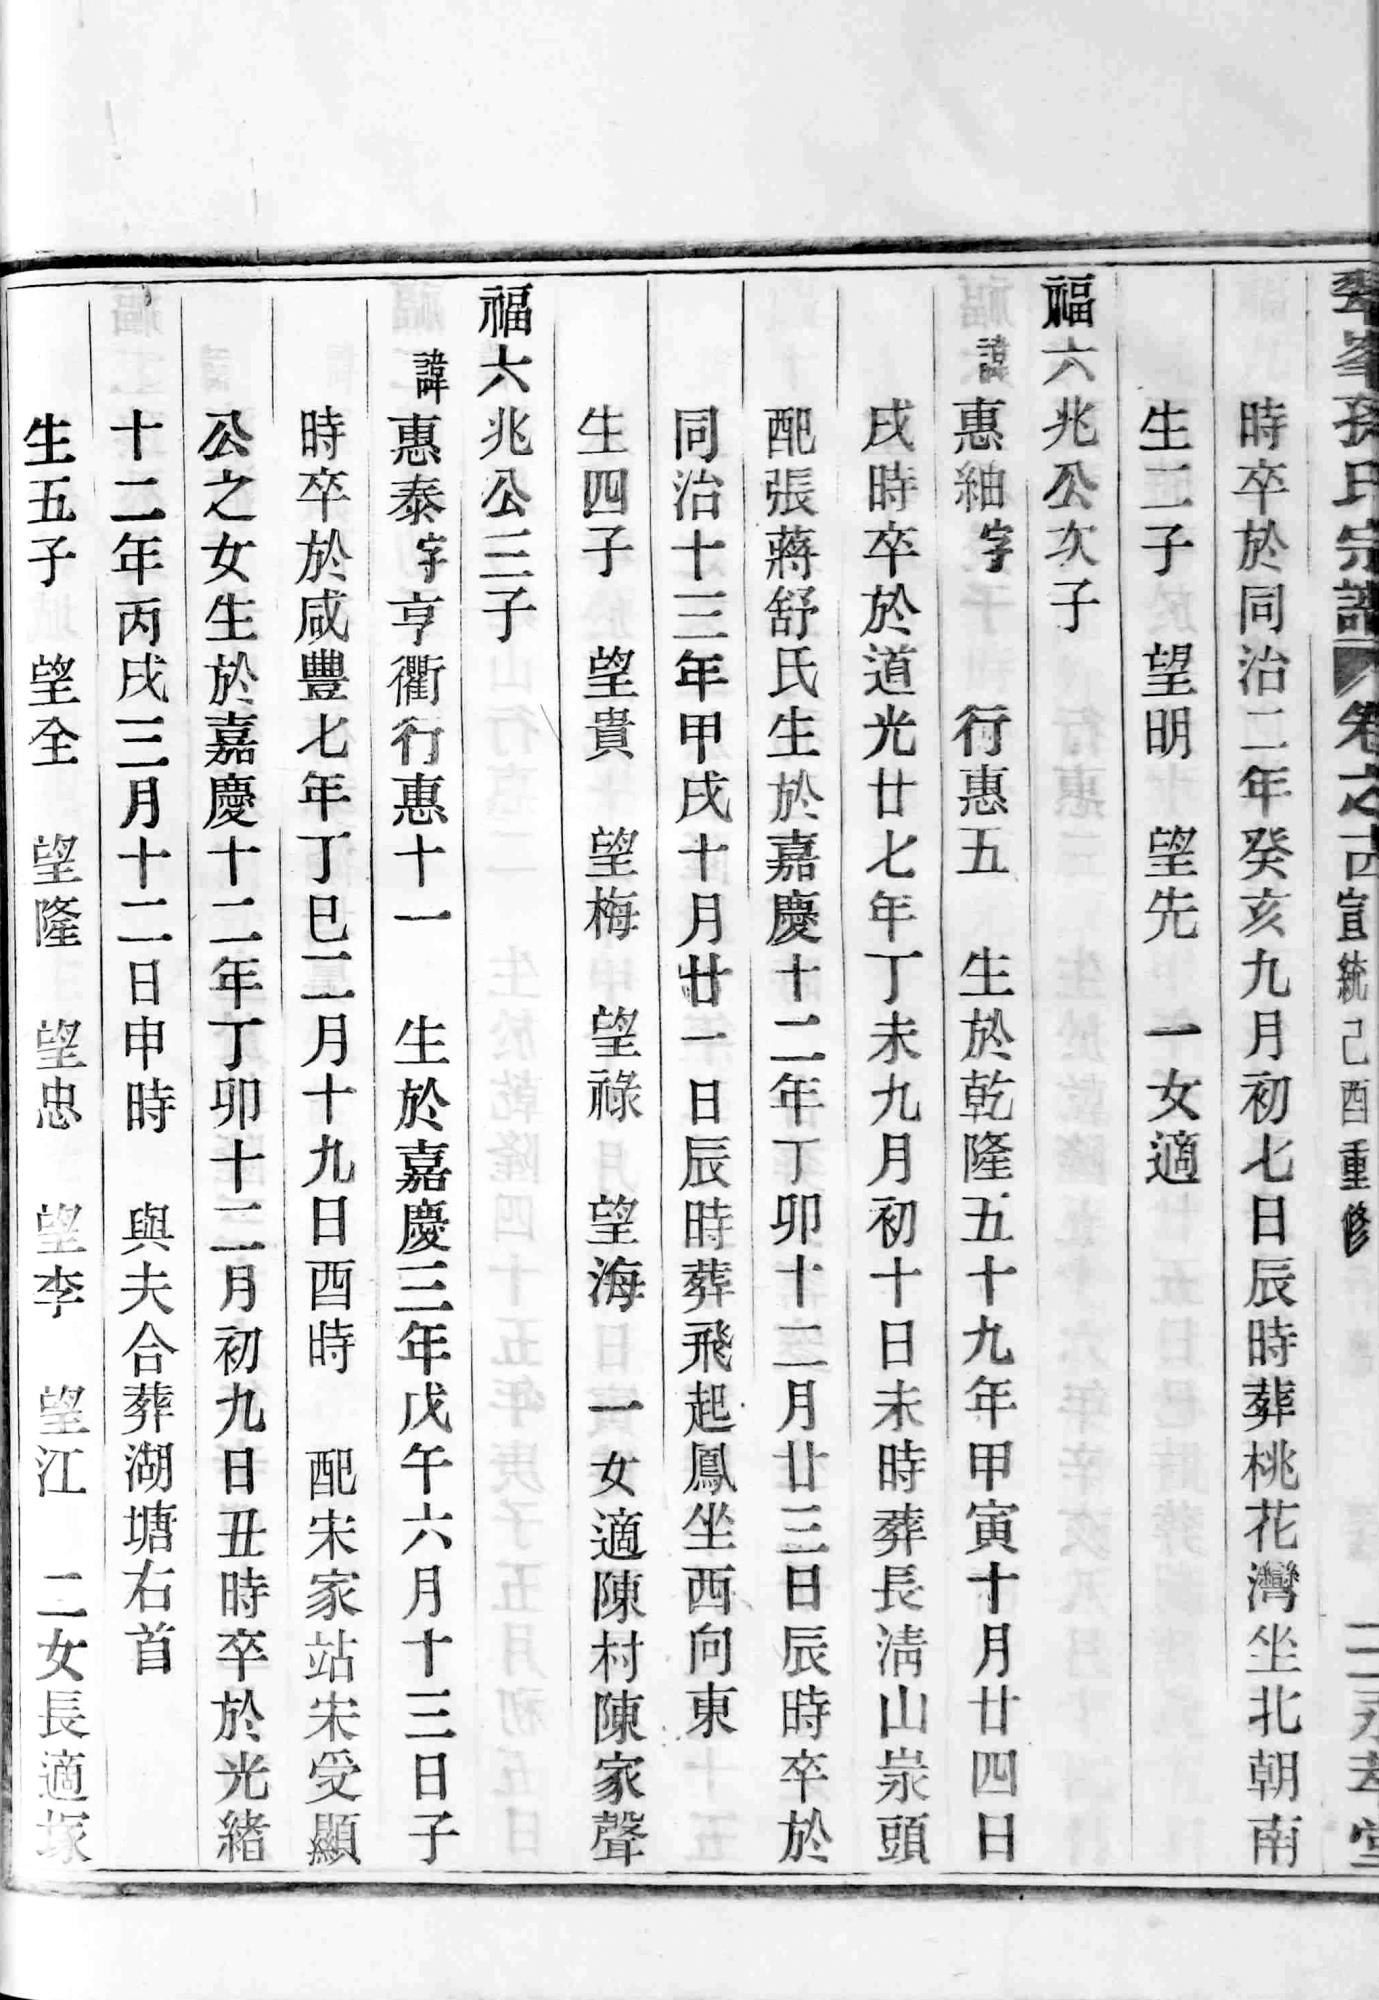 孫氏宗譜 卷之十四 宣統己酉重修 二 永孝堂
時卒於同治二年癸亥九月初七日辰時葬桃花灣坐北朝南
生二子 望明 望先 一女適
福六兆公次子
諱惠紬字 行惠五 生於乾隆五十九年甲寅十月廿四日
戌時卒於道光廿七年丁未九月初十日未時葬長清山泉頭
配張蔣舒氏生於嘉慶十二年丁卯十二月廿三日辰時卒於
同治十三年甲戌十月廿一日辰時葬飛起鳳坐西向東
生四子 望貴 望梅 望祿 望海 一女適陳村陳家聲
福六兆公三子
諱惠泰字亨衢行惠十一 生於嘉慶三年戊午六月十三日子
時卒於咸豐七年丁巳二月十九日酉時 配宋家站宋受顯
公之女生於嘉慶十二年丁卯十二月初九日丑時卒於光緒
十二年丙戌三月十二日申時 與夫合葬湖塘右首
生五子 望全 望隆 望忠 望李 望江 二女長適塚